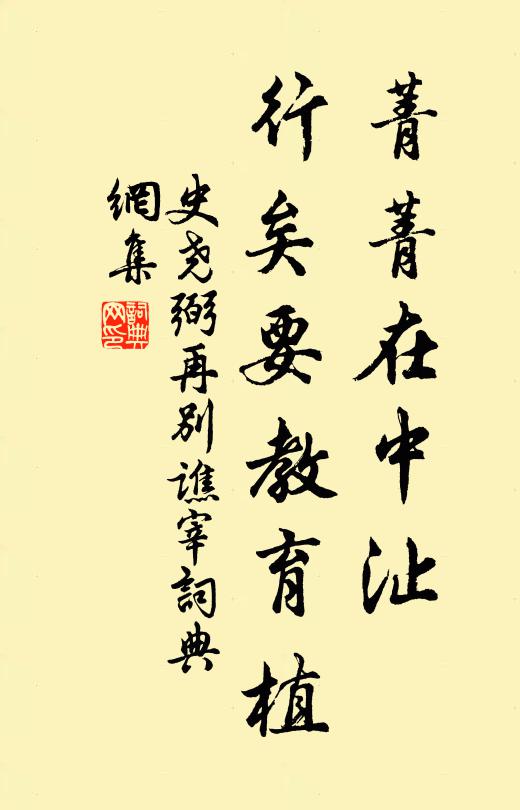 菁菁在中沚
行矣要教育植
史尧弼再别谯宰詞典
網集
詞典
网印